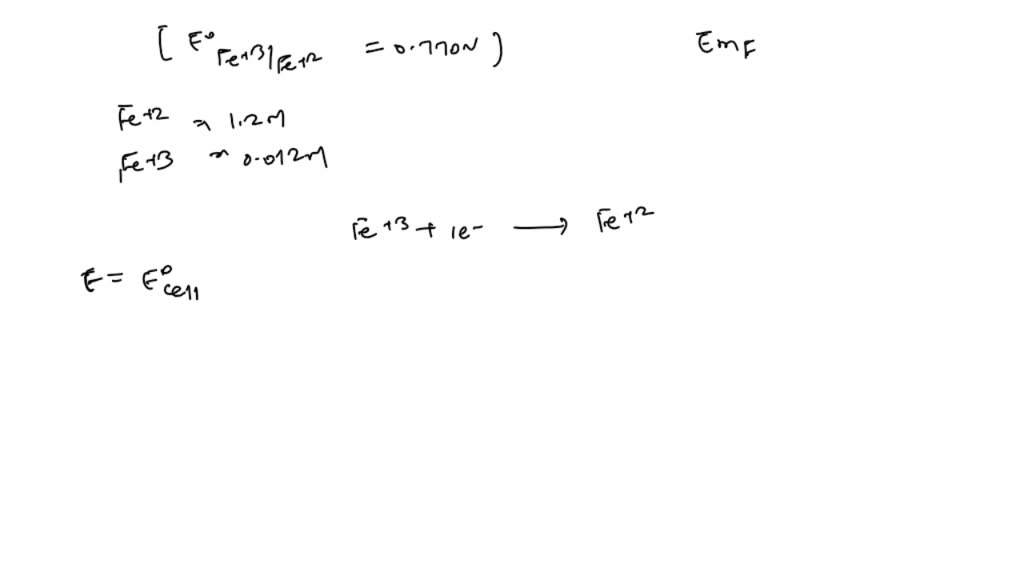 [ E° Fe+3|Fe+2 = 0.770V ) EmF
Fe+2 = 1.2M
Fe+3 = 0.012M
Fe+3 + 1e- → Fe+2
E = E°cell